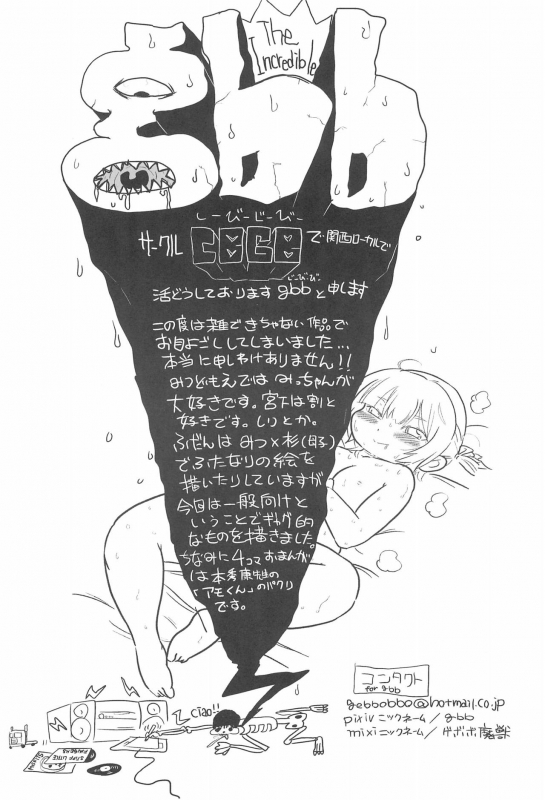 The
Incredible
gbb
しーびーじーびー
サークル CBGB で関西ローカルで
じーびーびー
活どうしております gbbと申します
この度は雑できちゃない作品で
お目よごししてしまいました…
本当に申しわけありません!!
みつどもえでは みっちゃんが
大好きです。宮下は割と
好きです。しりとか。
ふだんは みつ×杉(母子)
でふたなりの絵を
描いたりしていますが
今回は一般向けと
いうことでギャグ的
なものを描きました。
ちなみに4コマ おまんが
は本秀康先生の
「アモくん」のパクリ
です。
ciao!!
コンタクト
for gbb
gebbobbo@hotmail.co.jp
pixivニックネーム/gbb
mixiニックネーム/ゲボボ魔獣